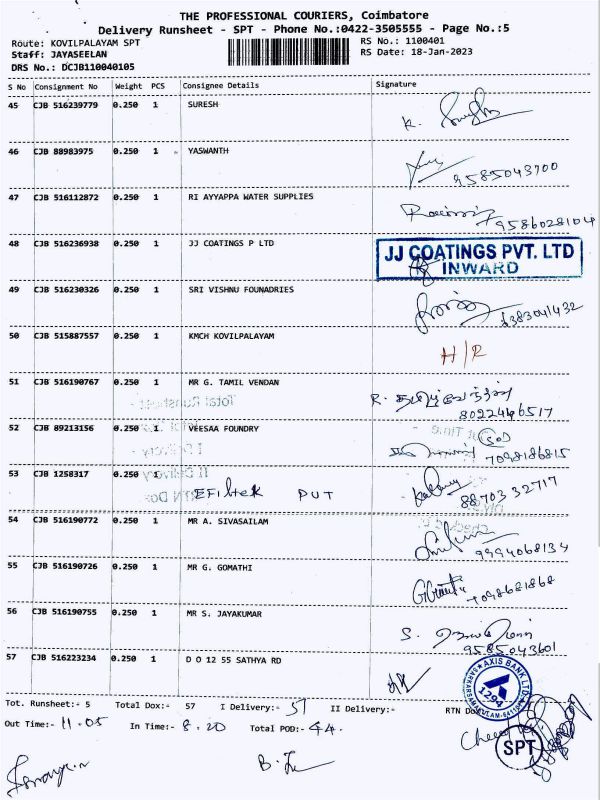 THE PROFESSIONAL COURIERS, Coimbatore
Delivery Runsheet - SPT - Phone No.:0422-3505555 - Page No.:5
Route: KOVILPALAYAM SPT
RS No.: 1100401
Staff: JAYASEELAN
RS Date: 18-Jan-2023
DRS No.: DCJB110040105
S No Consignment No Weight PCS Consignee Details Signature
45 CJB 516239779 0.250 1 SURESH K.
46 CJB 88983975 0.250 1 YASWANTH 9585043700
47 CJB 516112872 0.250 1 RI AYYAPPA WATER SUPPLIES 9586028104
48 CJB 516236938 0.250 1 JJ COATINGS P LTD JJ COATINGS PVT. LTD
INWARD
49 CJB 516230326 0.250 1 SRI VISHNU FOUNADRIES 6383041432
50 CJB 515887557 0.250 1 KMCH KOVILPALAYAM H/R
51 CJB 516190767 0.250 1 MR G. TAMIL VENDAN R. தமிழ்வேந்தன்
8022446517
52 CJB 89213156 0.250 1 VEESAA FOUNDRY 7098186815
53 CJB 1258317 0.250 1 EFiltek PUT 8870332717
54 CJB 516190772 0.250 1 MR A. SIVASAILAM 9994068134
55 CJB 516190726 0.250 1 MR G. GOMATHI 7098681868
56 CJB 516190755 0.250 1 MR S. JAYAKUMAR S.
9585043601
57 CJB 516223234 0.250 1 D O 12 55 SATHYA RD
AXIS BANK LTD
1294
Tot. Runsheet:- 5 Total Dox:- 57 I Delivery:- 57 II Delivery:- RTN Dox
Out Time:- 11.05 In Time:- 8.20 Total POD:- 44.
SPT